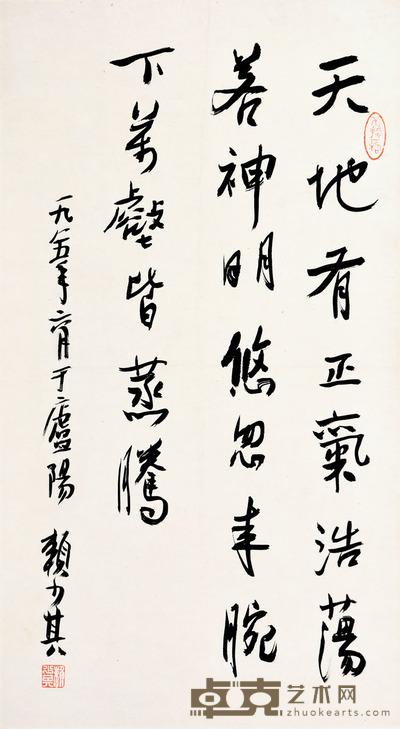 天地有正氣浩蕩
若神明悠忽来腕
下萬壑皆蒸騰
一九八五年六月于廬陽 賴少其
卓克艺术网
zhuokearts.com